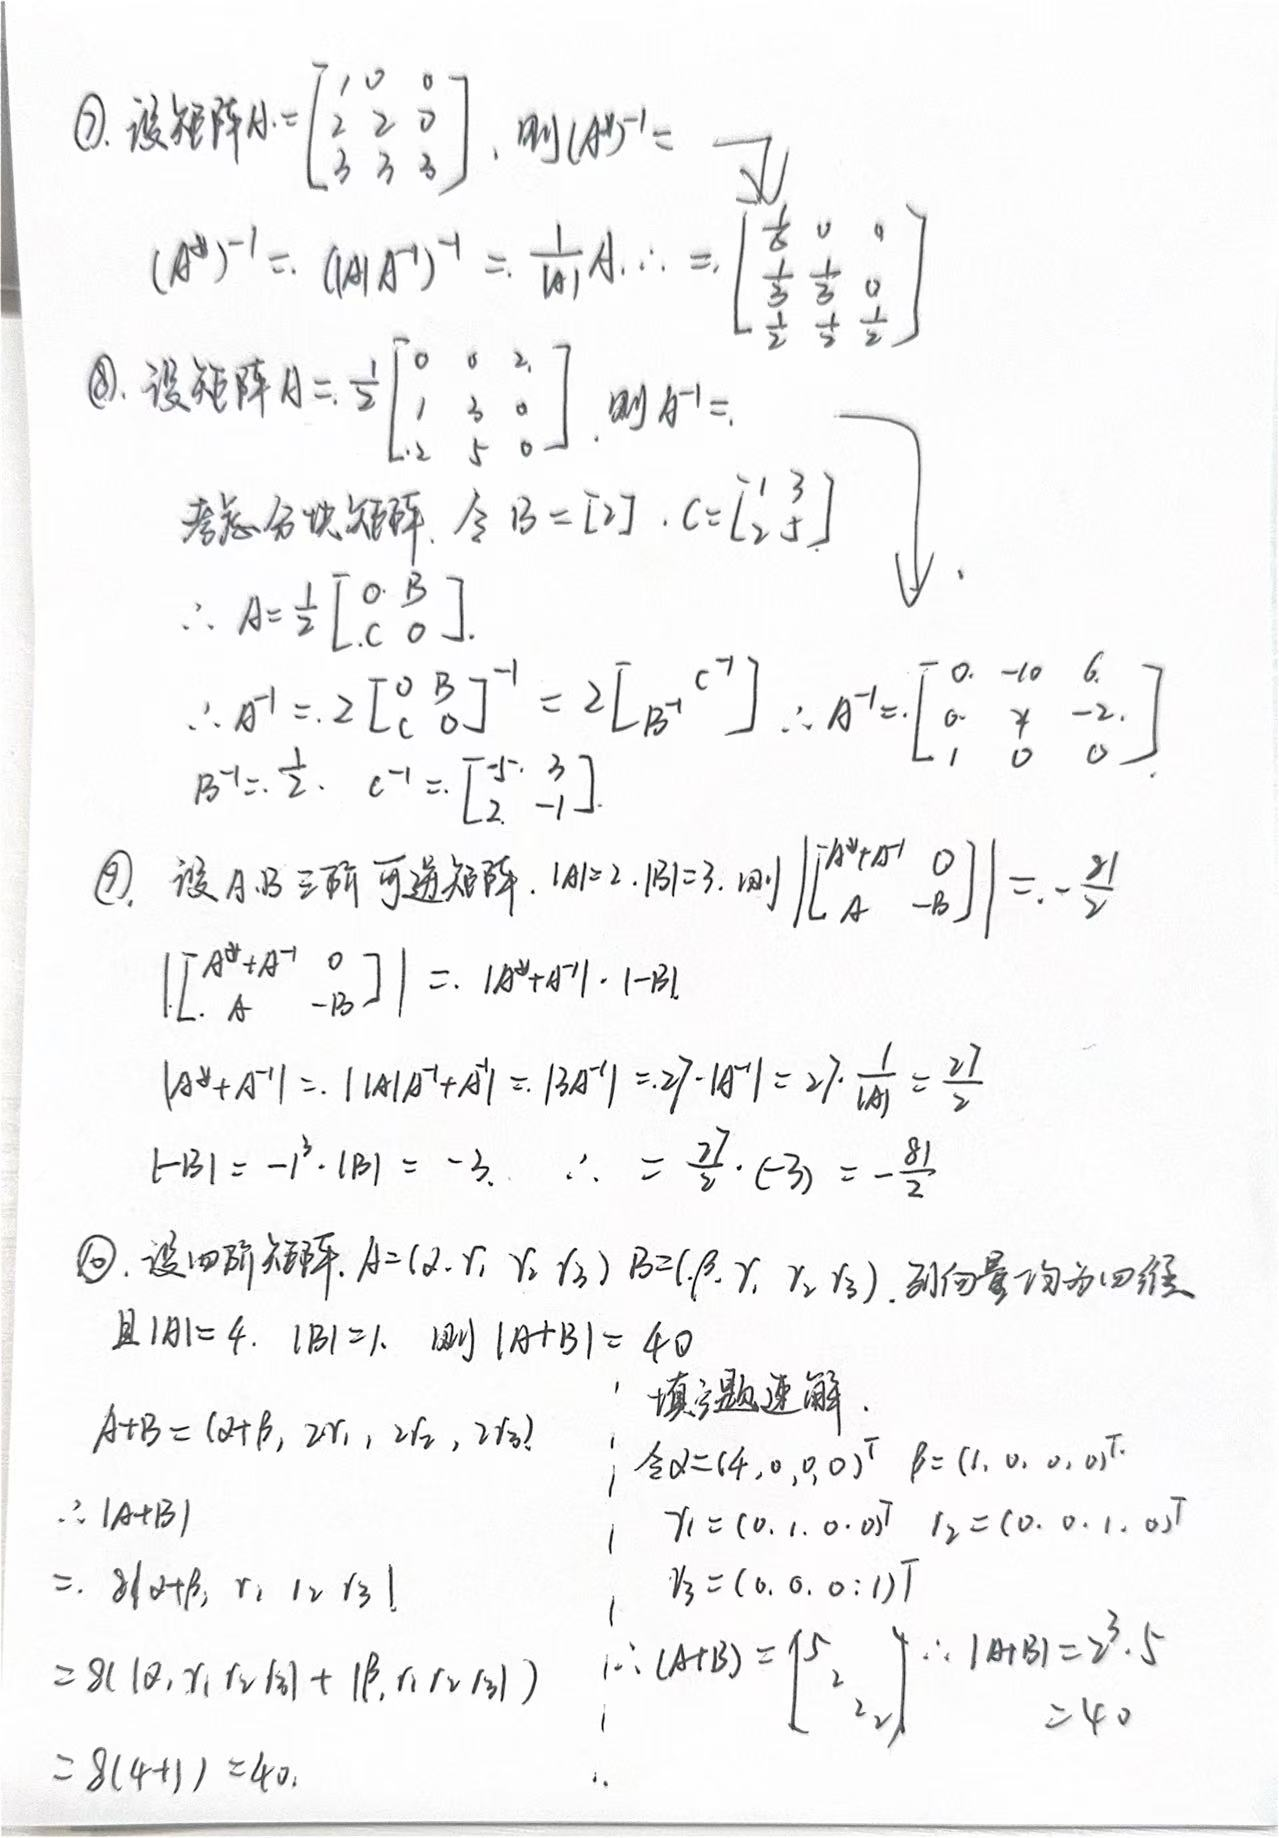 ⑦. 设矩阵A=[1 0 0; 2 2 0; 3 3 3], 则(A*)⁻¹=
(A*)⁻¹=(|A|A⁻¹)⁻¹=1/|A| A. ∴ =[1/6 0 0; 1/3 1/3 0; 1/2 1/2 1/2]
⑧. 设矩阵A=1/2[0 0 2; 1 3 0; 2 5 0], 则A⁻¹=
考虑分块矩阵. 令B=[2]. C=[1 3; 2 5]
∴ A=1/2[0 B; C 0].
∴ A⁻¹=2[0 B; C 0]⁻¹=2[ C⁻¹; B⁻¹ ] ∴ A⁻¹=[0 -10 6; 0 4 -2; 1 0 0]
B⁻¹=1/2. C⁻¹=[-5 3; 2 -1].
⑨. 设A.B三阶可逆矩阵. |A|=2. |B|=3. 则|[A*+A⁻¹ 0; A -B]|=-81/2
|[A*+A⁻¹ 0; A -B]|=|A*+A⁻¹|·|-B|
|A*+A⁻¹|=||A|A⁻¹+A⁻¹|=|3A⁻¹|=27·|A⁻¹|=27·1/|A|=27/2
|-B|=-1³·|B|=-3. ∴ =27/2·(-3)=-81/2
⑩. 设四阶矩阵. A=(α. γ₁ γ₂ γ₃) B=(β. γ₁ γ₂ γ₃). 列向量均为四维
且|A|=4. |B|=1. 则|A+B|=40
A+B=(α+β, 2γ₁, 2γ₂, 2γ₃)
∴ |A+B|
=8|α+β, γ₁ γ₂ γ₃|
=8(|α, γ₁ γ₂ γ₃|+|β, γ₁ γ₂ γ₃|)
=8(4+1)=40.
填空题速解.
令α=(4,0,0,0)ᵀ β=(1,0,0,0)ᵀ
γ₁=(0.1.0.0)ᵀ γ₂=(0.0.1.0)ᵀ
γ₃=(0.0.0.1)ᵀ
∴ (A+B)=[5 2 2 2] ∴ |A+B|=2³·5
=40